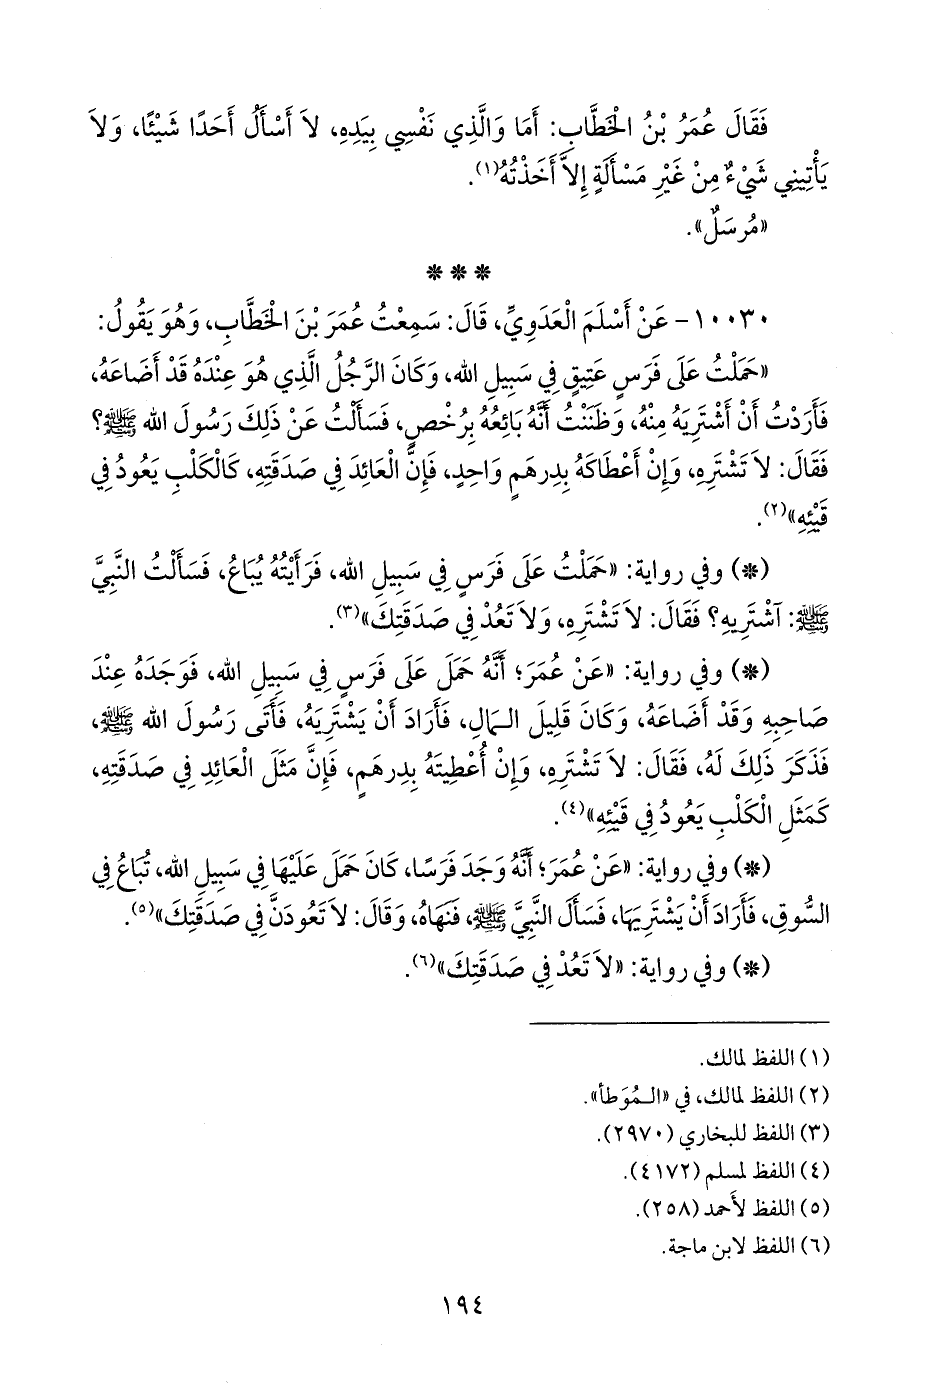 فَقَالَ عُمَرُ بْنُ الْخَطَّابِ: أَمَا وَالَّذِي نَفْسِي بِيَدِهِ، لاَ أَسْأَلُ أَحَدًا شَيْئًا، وَلاَ
يَأْتِينِي شَيْءٌ مِنْ غَيْرِ مَسْأَلَةٍ إِلاَّ أَخَذْتُهُ»(١).
«مُرسَلٌ».
* * *
١٠٠٣٠- عَنْ أَسْلَمَ الْعَدَوِيِّ، قَالَ: سَمِعْتُ عُمَرَ بْنَ الْخَطَّابِ، وَهُوَ يَقُولُ:
«حَمَلْتُ عَلَى فَرَسٍ عَتِيقٍ فِي سَبِيلِ الله، وَكَانَ الرَّجُلُ الَّذِي هُوَ عِنْدَهُ قَدْ أَضَاعَهُ،
فَأَرَدْتُ أَنْ أَشْتَرِيَهُ مِنْهُ، وَظَنَنْتُ أَنَّهُ بَائِعُهُ بِرُخْصٍ، فَسَأَلْتُ عَنْ ذَلِكَ رَسُولَ الله ﷺ؟
فَقَالَ: لاَ تَشْتَرِهِ، وَإِنْ أَعْطَاكَهُ بِدِرهَمٍ وَاحِدٍ، فَإِنَّ الْعَائِدَ فِي صَدَقَتِهِ، كَالْكَلْبِ يَعُودُ فِي
قَيْئِهِ»(٢).
(*) وفي رواية: «حَمَلْتُ عَلَى فَرَسٍ فِي سَبِيلِ الله، فَرَأَيْتُهُ يُبَاعُ، فَسَأَلْتُ النَّبِيَّ
ﷺ: آشْتَرِيهِ؟ فَقَالَ: لاَ تَشْتَرِهِ، وَلاَ تَعُدْ فِي صَدَقَتِكَ»(٣).
(*) وفي رواية: «عَنْ عُمَرَ؛ أَنَّهُ حَمَلَ عَلَى فَرَسٍ فِي سَبِيلِ الله، فَوَجَدَهُ عِنْدَ
صَاحِبِهِ وَقَدْ أَضَاعَهُ، وَكَانَ قَلِيلَ الـمَالِ، فَأَرَادَ أَنْ يَشْتَرِيَهُ، فَأَتَى رَسُولَ الله ﷺ،
فَذَكَرَ ذَلِكَ لَهُ، فَقَالَ: لاَ تَشْتَرِهِ، وَإِنْ أُعْطِيتَهُ بِدِرهَمٍ، فَإِنَّ مَثَلَ الْعَائِدِ فِي صَدَقَتِهِ،
كَمَثَلِ الْكَلْبِ يَعُودُ فِي قَيْئِهِ»(٤).
(*) وفي رواية: «عَنْ عُمَرَ؛ أَنَّهُ وَجَدَ فَرَسًا، كَانَ حَمَلَ عَلَيْهَا فِي سَبِيلِ الله، تُبَاعُ فِي
السُّوقِ، فَأَرَادَ أَنْ يَشْتَرِيَهَا، فَسَأَلَ النَّبِيَّ ﷺ، فَنَهَاهُ، وَقَالَ: لاَ تَعُودَنَّ فِي صَدَقَتِكَ»(٥).
(*) وفي رواية: «لاَ تَعُدْ فِي صَدَقَتِكَ»(٦).
(١) اللفظ لمالك.
(٢) اللفظ لمالك، في «الـمُوَطأ».
(٣) اللفظ للبخاري (٢٩٧٠).
(٤) اللفظ لمسلم (٤١٧٢).
(٥) اللفظ لأحمد (٢٥٨).
(٦) اللفظ لابن ماجة.
١٩٤